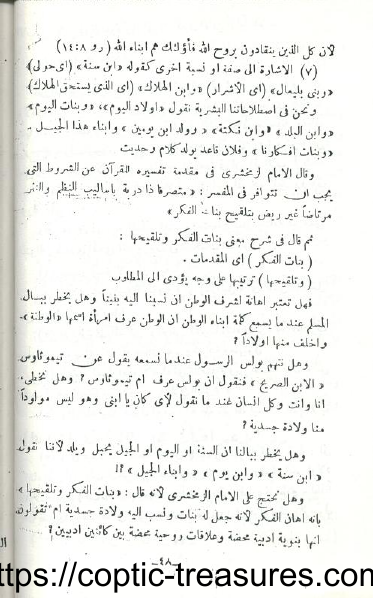 لأن كل الذين ينقادون بروح الله فأولئك هم ابناء الله (رو ٨:١٤)
(٧) الاشارة الى صفة او نسبة اخرى كقوله «ابن سنة» (اى حولى)
«وبنى بليعال» (اى الأشرار) «وابن الهلاك» (اى الذى يستحق الهلاك)
ونحن فى اصطلاحاتنا البشرية نقول «اولاد اليوم»، «وبنات اليوم»
«وابن البلد» «وابن نكتة» «وولد ابن يومين» «وابناء هذا الجيل»
«وبنات افكارنا» وفلان قاعد يولد كلام وحديت
وقال الامام الزمخشرى فى مقدمة تفسيره للقرآن عن الشروط التى
يجب ان تتوافر فى المفسر: «متصرفا ذا دربة بأساليب النظم والنثر
مرتاضاً غير ريض بتلقيح بنات الفكر»
ثم قال فى شرح معنى بنات الفكر وتلقيحها :
(بنات الفكر) اى المقدمات .
(وتلقيحها) ترتيبها على وجه يؤدى الى المطلوب
فهل تعتبر اهانة لشرف الوطن ان نسبنا اليه بنيناً وهل يخطر ببال
المسلم عند ما يسمع كلمة ابناء الوطن ان الوطن عرف امرأة اسمها «الوطنة»
واخلف منها اولاداً ؟
وهل نتهم بولس الرسول عندما نسمعه يقول عن تيموثاوس
«الابن الصريح» فنقول ان بولس عرف ام تيموثاوس ؟ وهل نخطىء
انا وانت وكل انسان عند ما نقول لأى كان يا ابنى وهو ليس مولوداً
منا ولادة جسدية ؟
وهل يخطر ببالنا ان السنة او اليوم او الجيل يحبل ويلد لأننا نقول
«ابن سنة» «وابن يوم» «وابناء الجيل» ؟!
وهل نحتج على الامام الزمخشرى لأنه قال : «بنات الفكر وتلقيحها»
بأنه اهان الفكر لأنه جعل له بنات ونسب اليه ولادة جسدية ام تقولون
انها بنوية ادبية محضة وعلاقات روحية محضة بين كائنين ادبيين ؟
—٤٨—
https://coptic-treasures.com